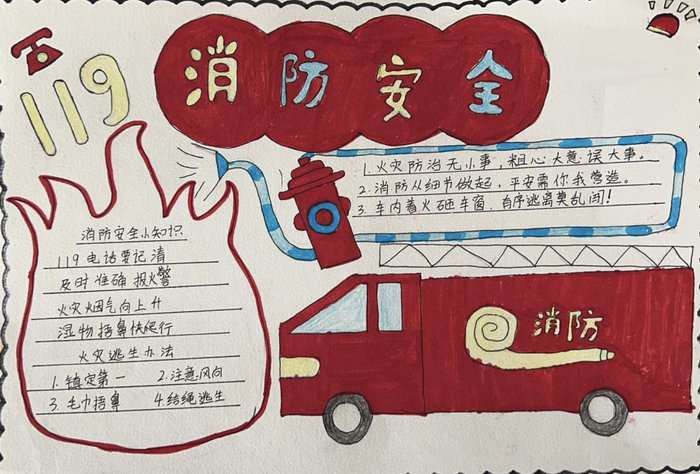 119
消防安全
1.火灾防治无小事，粗心大意误大事。
2.消防从细节做起，平安需你我营造。
3.车内着火砸车窗，有序逃离莫乱闯！
消防安全小知识
119电话要记清
及时准确报火警
火灾烟气向上升
湿物捂鼻快爬行
火灾逃生办法
1.镇定第一 2.注意风向
3.毛巾捂鼻 4.结绳逃生
消防